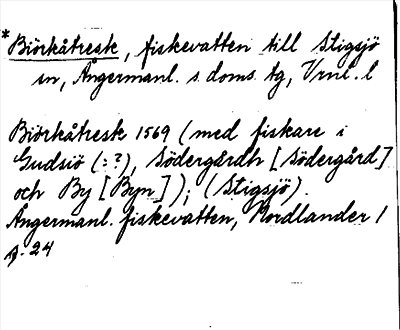 *Biörkåtresk, fiskevatten till Stigsjö
sn, Ångermanl. s. doms. tg, Vrnl. l
Biörkåtresk 1569 (med fiskare i
Gudsiö (: ?), Södergårdh [Södergård]
och By [Byn]); (Stigsjö).
Ångermanl. fiskevatten, Nordlander 1
s. 24